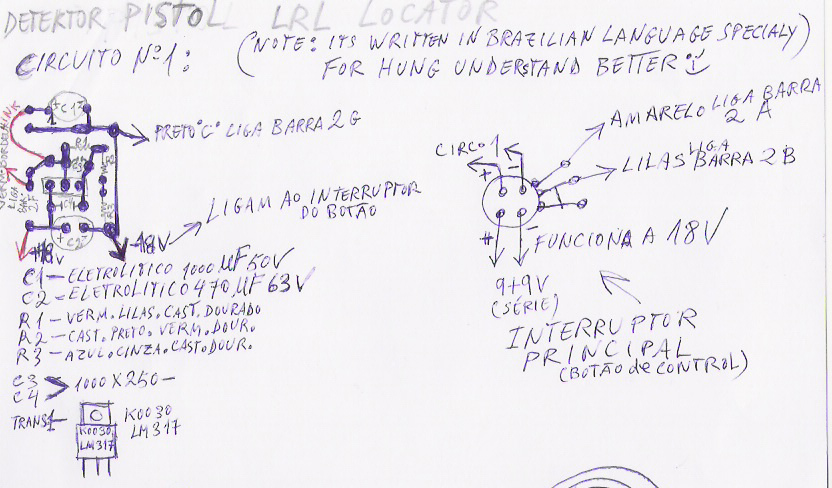 DETEKTOR PISTOL LRL LOCATOR
CIRCUITO Nº1:
(NOTE: ITS WRITTEN IN BRAZILIAN LANGUAGE SPECIALY)
FOR HUNG UNDERSTAND BETTER :)
+C1-
PRETO"C" LIGA BARRA 2G
R1
+C2-
-18V
LIGAM AO INTERRUPTOR
DO BOTÃO
C1 - ELETROLITICO 1000 µF 50V
C2 - ELETROLITICO 470 µF 63V
R1 - VERM. LILAS. CAST. DOURADO
R2 - CAST. PRETO. VERM. DOUR.
R3 - AZUL. CINZA. CAST. DOUR.
C3
C4 > 1000 X 250 -
TRANS1 -
K0030
LM317
K0030
LM317
CIRCO 1
+ -
AMARELO LIGA BARRA
2 A
LILAS LIGA BARRA 2B
+ -
FUNCIONA A 18V
9+9V
(SÉRIE)
INTERRUPTOR
PRINCIPAL
(BOTÃO de CONTROL)